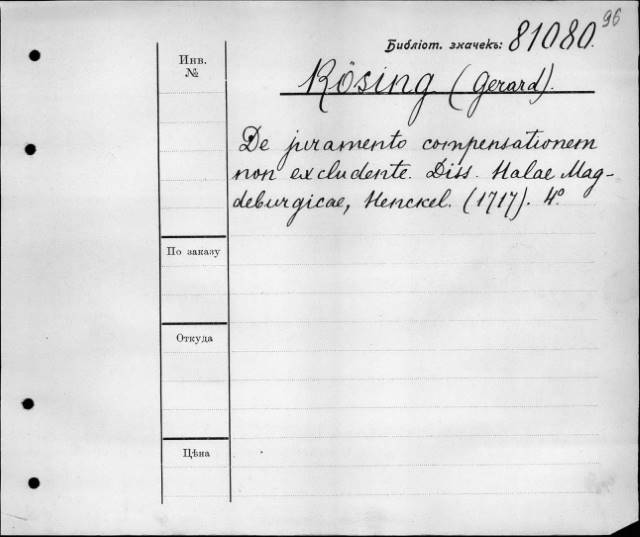 96
Библіот. значекъ: 81080.
Инв.
№
Rösing (Gerard).
De juramento compensationem
non excludente. Diss. Halae Mag-
deburgicae, Henckel. (1717). 4°.
По заказу
Откуда
Цѣна